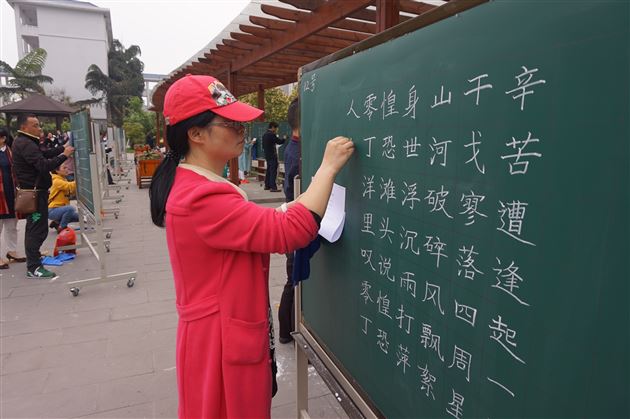 辛苦遭逢起一
干戈寥落四周星
山河破碎风飘絮
身世浮沉雨打萍
惶恐滩头说惶恐
零丁洋里叹零丁
人